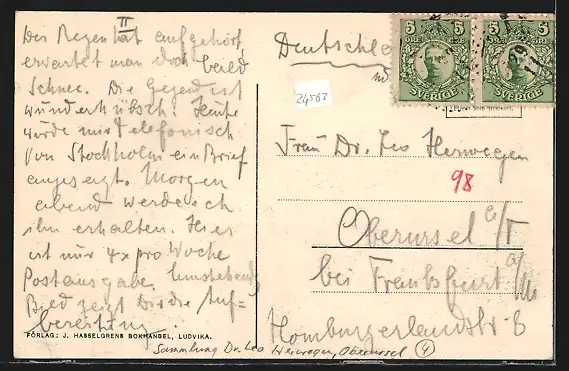 II
Der Regen hat aufgehört
erwartet man doch bald
Schnee. Die Gegend ist
wunderhübsch. Heute
wurde mir telefonisch
von Stockholm ein Brief
angesagt. Morgen
abend werde ich
ihn erhalten. Hier
ist nur 4x pro Woche
Postausgabe. Umstehend
Bild zeigt Dir die Auf-
bereitung.
FÖRLAG: J. HASSELGRENS BOKHANDEL, LUDVIKA.
Deutschland
5 5
SVERIGE
5 5
SVERIGE
24563
Frau Dr. Leo Herwegen
98
Oberursel i/T
bei Frankfurt a/M
Homburgerlandstr. 8
Sammlung Dr. Leo Herwegen, Oberursel 4